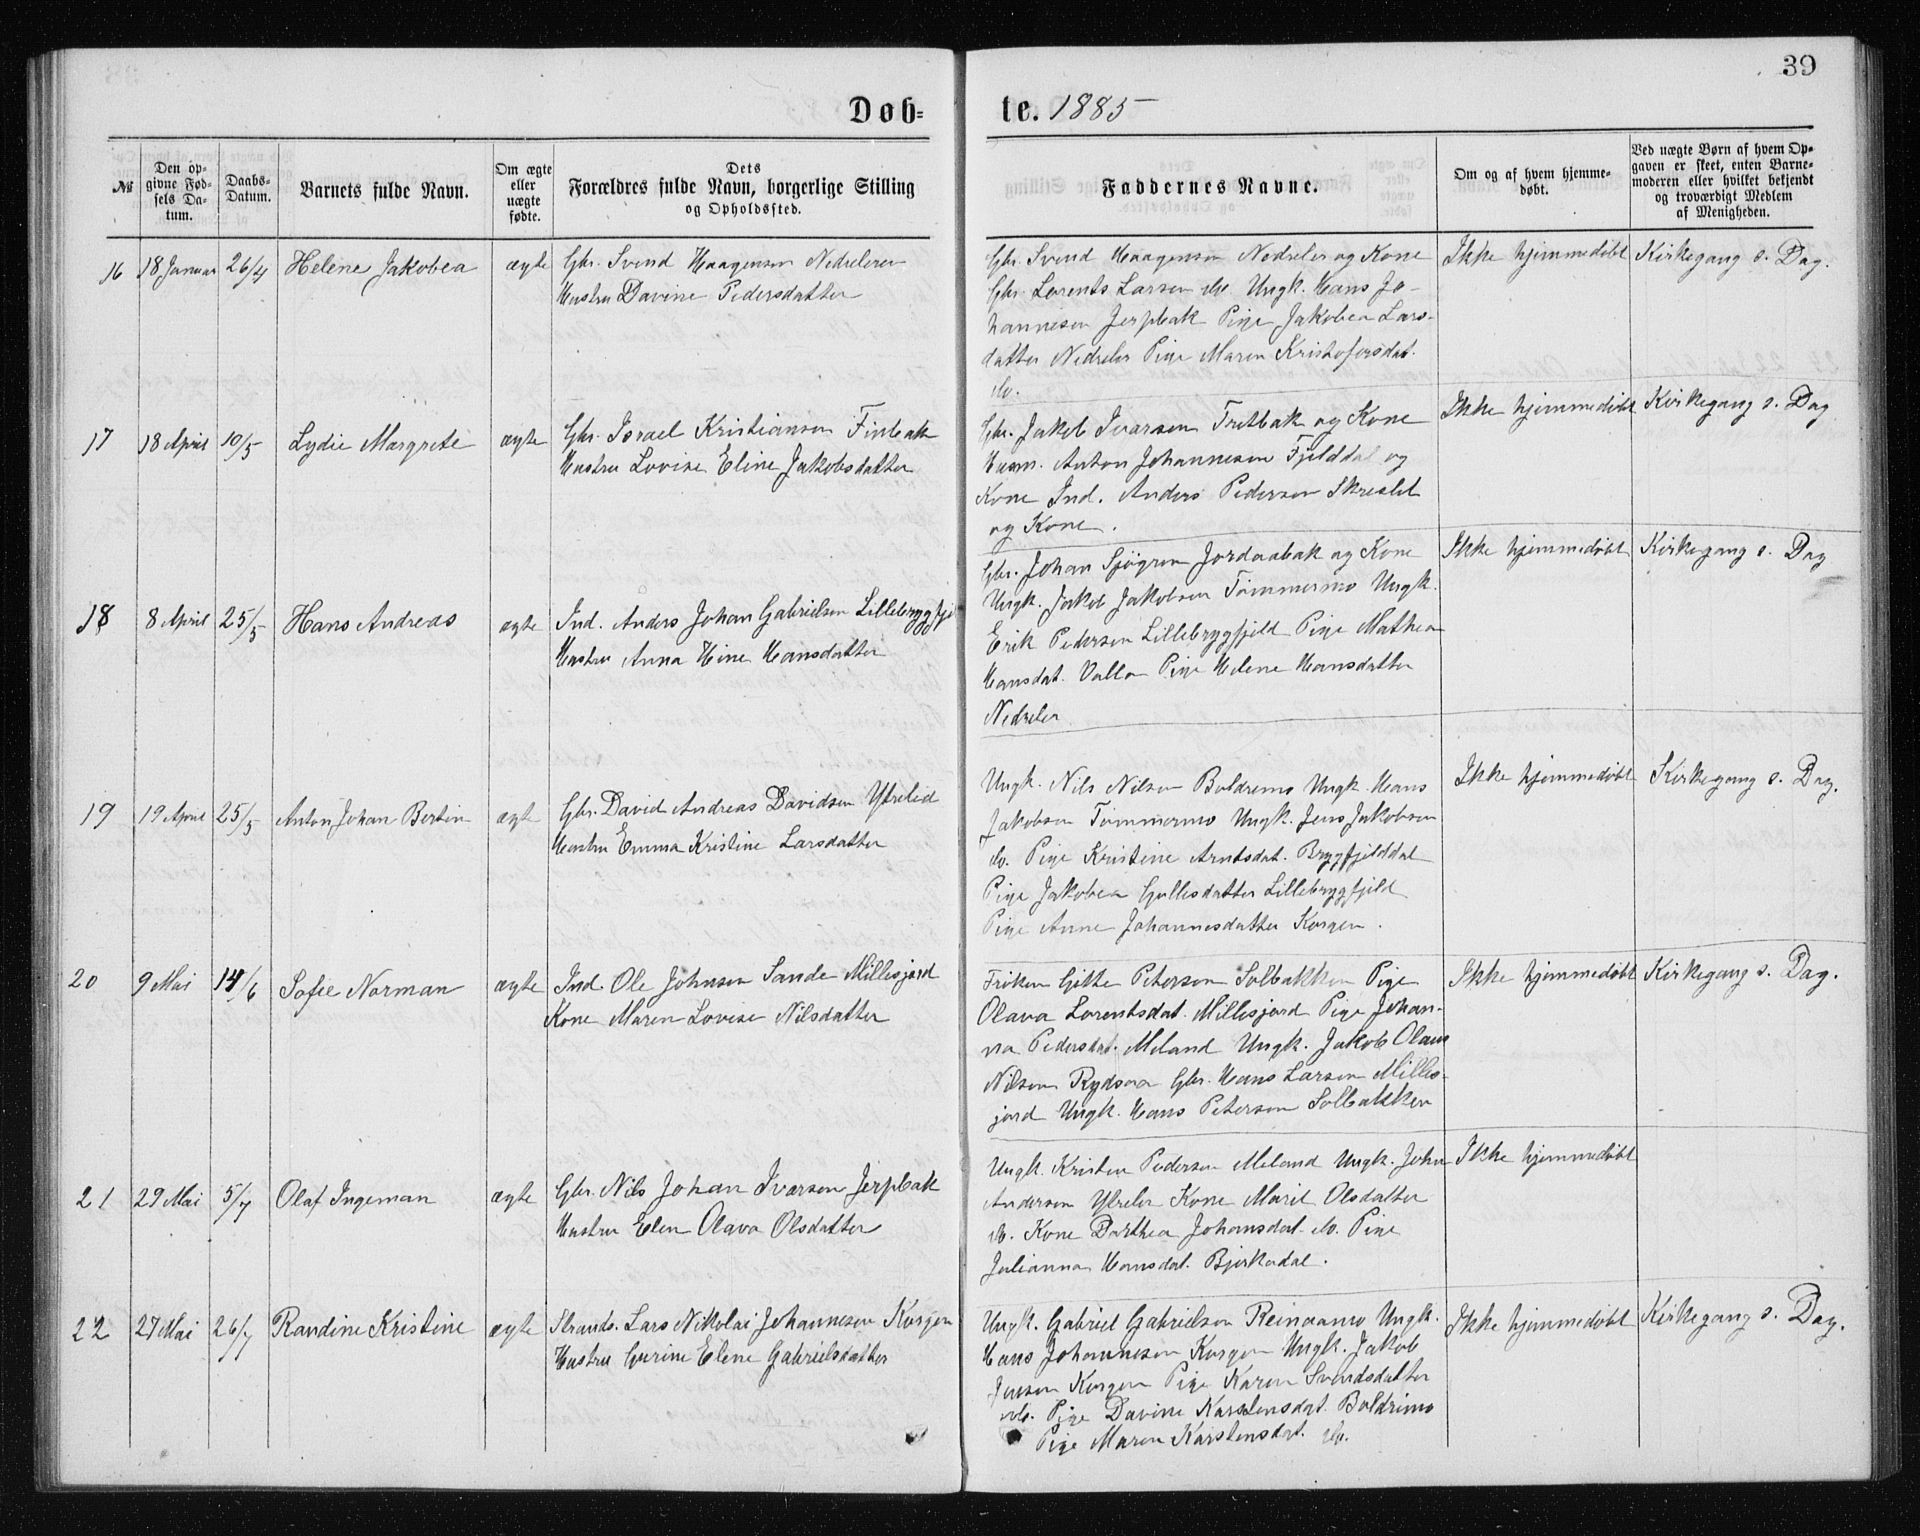 39
Døb=
te. 1885
№
Den op-
givne Fød-
sels Da-
tum.
Daabs-
Datum.
Barnets fulde Navn.
Om ægte
eller
uægte
fødte.
Dets
Forældres fulde Navn, borgerlige Stilling
og Opholdssted.
Faddernes Navne.
Om og af hvem hjemme-
døbt.
Ved uægte Børn af hvem Op-
gaven er skeet, enten Barne-
moderen eller hvilket bekjendt
og troværdigt Medlem
af Menigheden.
16 18 Januar 26/4 Helene Jakobea ægte Gbr. Svend Haagensen Nedreleren
Hustru Davine Pedersdatter
Gbr. Svend Haagensen Nedreler og Kone
Gbr. Lorents Larsen do Ungk. Hans Jo-
hannesen Jerpbak Pige Jakobea Lars-
datter Nedreler Pige Maren Kristofersdat.
do.
Ikke hjemmedøbt Kirkegang s. Dag.
17 18 April 10/5 Lydie Margrete ægte Gbr. Israel Kristiansen Finbak
Hustru Lovise Eline Jakobsdatter
Gbr. Jakob Ivarsen Tretbak og Kone
Husm. Anton Johannesen Fjelddal og
Kone Ind. Anders Pedersen Skreslet
og Kone.
Ikke hjemmedøbt Kirkegang s. Dag
18 8 April 25/5 Hans Andreas ægte Ind. Anders Johan Gabrielsen Lillebryggfje
Hustru Anna Hine Hansdatter
Gbr. Johan Sjøgren Jordaabak og Kone
Ungk. Jakob Jakobsen Tømmermo Ungk.
Erik Pedersen Lillebrygfjeld Pige Mathea
Hansdat. Valla Pige Helene Hansdatter
Nedreler
Ikke hjemmedøbt Kirkegang s. Dag
19 19 April 25/5 Anton Johan Bertin ægte Gbr. David Andreas Davidsen Ytrelid
Hustru Emma Kristine Larsdatter
Ungk. Nils Nilsen Boldremo Ungk. Hans
Jakobsen Tømmermo Ungk. Jens Jakobsen
do. Pige Kristine Arntsdat. Brygfjelddal
Pige Jakobea Gullesdatter Lillebrygfjeld
Pige Anne Johannesdatter Korgen.
Ikke hjemmedøbt Kirkegang s. Dag.
20 9 Mai 14/6 Sofie Norman ægte Ind. Ole Johnsen Sande Millesjord
Kone Maren Lovise Nilsdatter
Frøken Gitte Petersen Solbakken Pige
Olava Lorentsdat. Millesjord Pige Johan-
na Pedersdat. Meland Ungk. Jakob Olaus
Nilsen Rydsaa Gbr. Hans Larsen Milles-
jord Ungk. Hans Petersen Solbakken
Ikke hjemmedøbt Kirkegang s. Dag.
21 29 Mai 5/7 Olaf Ingeman ægte Gbr. Nils Johan Ivarsen Jerpbak
Hustru Elen Olava Olsdatter
Ungk. Kristen Pedersen Meland Ungk. John
Andersen Ytreler Kone Marit Olsdatter
do. Kone Dorthea Johansdat. do. Pige
Julianna Hansdat. Bjerkadal.
Ikke hjemmedøbt
22 27 Mai 26/7 Randine Kristine ægte Strands. Lars Nikolai Johannesen Korgen
Hustru Gurine Elene Gabrielsdatter
Ungk. Gabriel Gabrielsen Reinaamo Ungk.
Hans Johannesen Korgen Ungk. Jakob
Jensen Korgen Pige Karen Svendsdatter
do. Pige Davine Karstensdat. Boldremo
Pige Maren Karstensdat. do.
Ikke hjemmedøbt Kirkegang s. Dag.